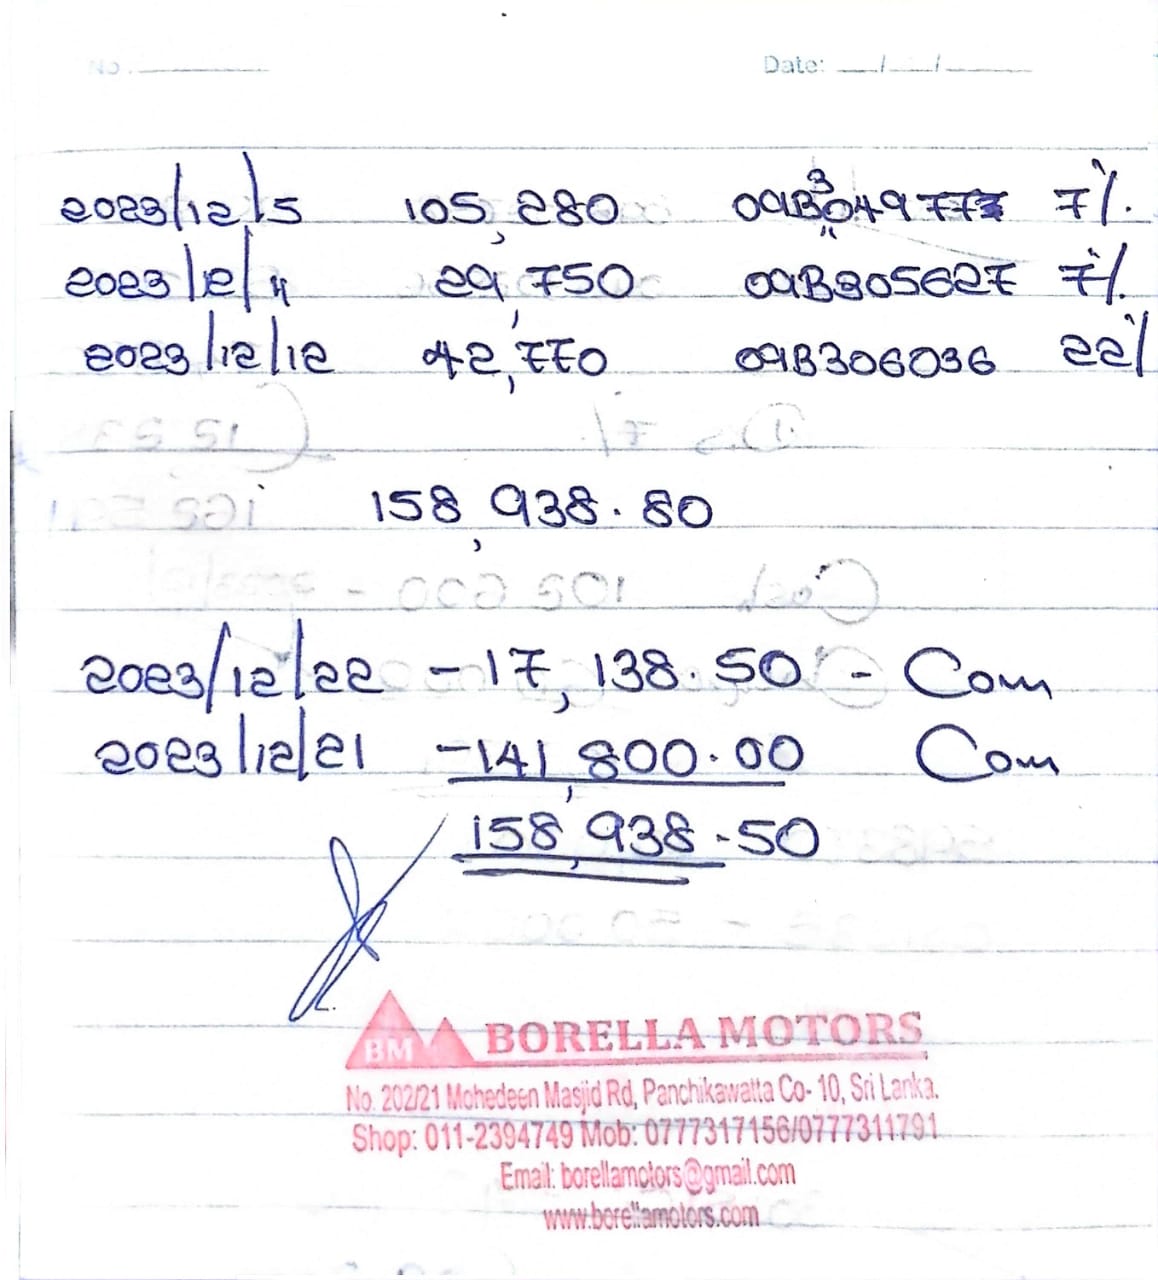 No. Date: __/__/__
2023/12/5 105,280 09B3049777 7%
2023/12/4 29,750 09B305627 7%
2023/12/12 42,770 09B306036 22%
158,938.80
2023/12/22 -17,138.50 - Com
2023/12/21 -141,800.00 Com
158,938.50
BM BORELLA MOTORS
No. 202/21 Mohedeen Masjid Rd, Panchikawatta Co- 10, Sri Lanka.
Shop: 011-2394749 Mob: 0777317156/0777311791
Email: borellamotors@gmail.com
www.borellamotors.com